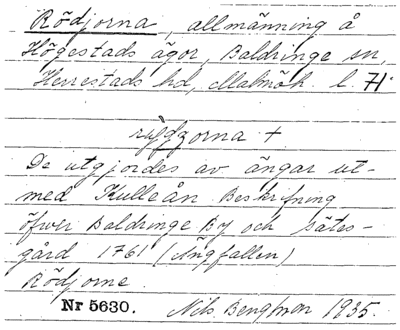 Rödjorna, allmänning å
Högestads ägor, Baldringe sn,
Herrestads hd, Malmöh. l. 71.
+
De utgjordes av ängar ut-
med Kulleån. Beskrifning
öfwer Baldringe By och säte-
gård 1761 (Ängfallen)
Rödjorne.
Nr 5630. Nils Bengtson 1935.